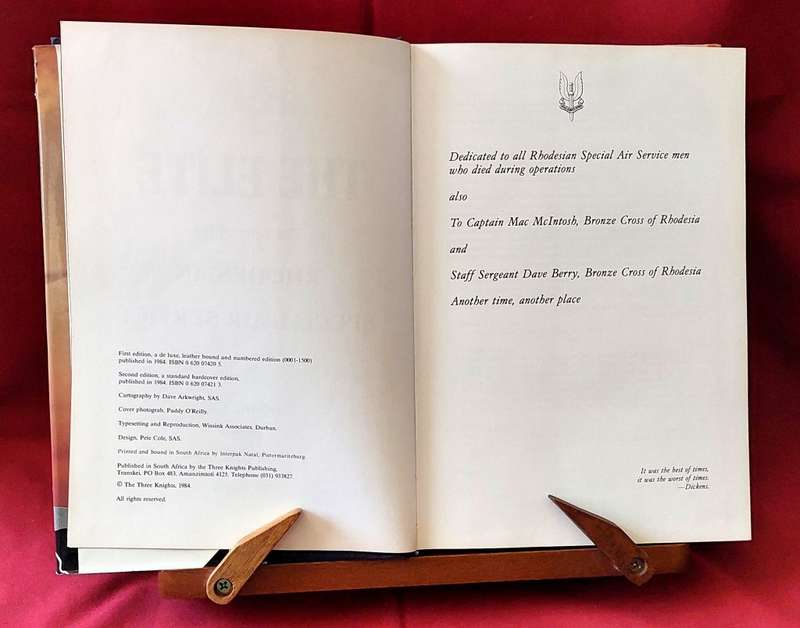 First edition, a de luxe, leather bound and numbered edition (0001-1500)
published in 1984. ISBN 0 620 07420 5.
Second edition, a standard hardcover edition,
published in 1984. ISBN 0 620 07421 3.
Cartography by Dave Arkwright, SAS.
Cover photograph, Paddy O'Reilly.
Typesetting and Reproduction, Wissink Associates, Durban.
Design, Pete Cole, SAS.
Printed and bound in South Africa by Interpak Natal, Pietermaritzburg
Published in South Africa by the Three Knights Publishing,
Transkei, PO Box 483, Amanzimtoti 4125, Telephone (031) 933827.
© The Three Knights, 1984
All rights reserved.
Dedicated to all Rhodesian Special Air Service men
who died during operations
also
To Captain Mac McIntosh, Bronze Cross of Rhodesia
and
Staff Sergeant Dave Berry, Bronze Cross of Rhodesia
Another time, another place
It was the best of times,
it was the worst of times.
—Dickens.